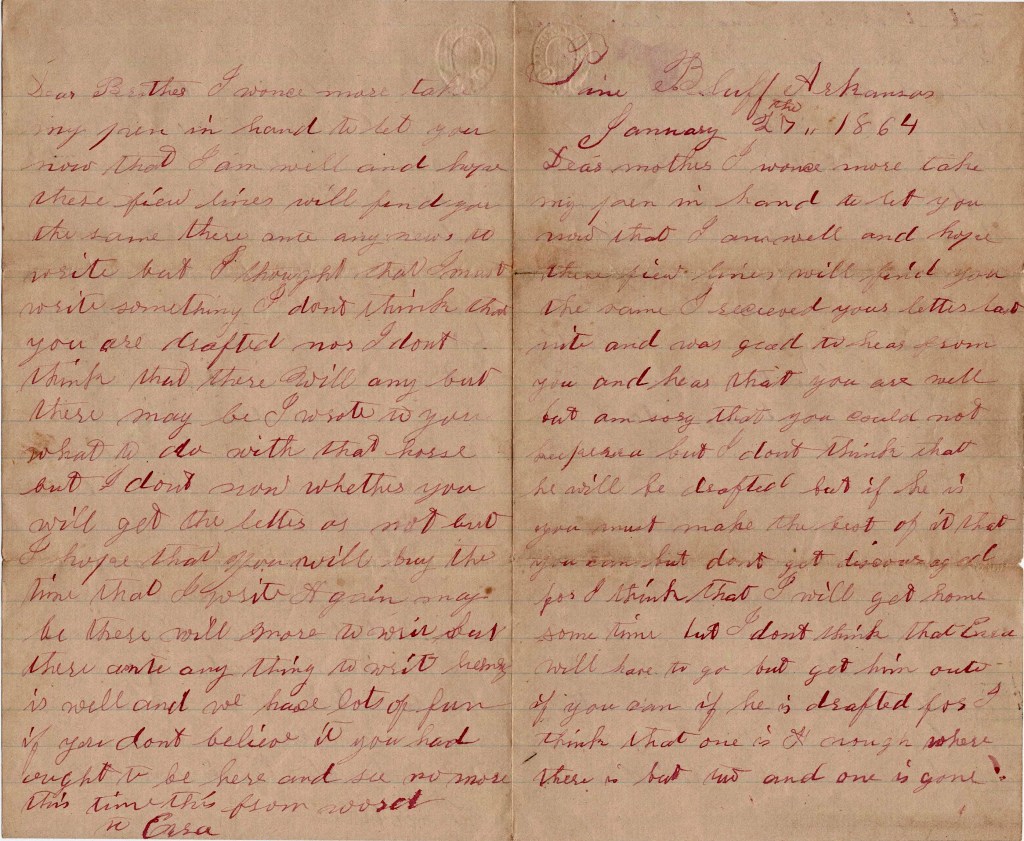 Dear Brother I wonce more take
my pen in hand to let you
now that I am will and hope
these fiew lines will find you
the same there ante any news to
write but I thought that I must
write something I dont think that
you are drafted nor I dont
think that there will any but
there may be I wrote to you
what to do with that horse
but I dont now whether you
will get the letter or not but
I hope that you will buy the
time that I write Again may
be there will more to writ but
there ante any thing to writ
is well and we have lots of fun
if you dont believe it you had
ought to be here and see no more
this time this from word
to Ezra
Pine Bluff Arkansas
January 27the " 1864
Dear mother I wonce more take
my pen in hand to let you
now that I am well and hope
these fiew lines will find you
the same I recieved your letter last
nite and was glad to hear from
you and hear that you are well
but am sory that you could not
but I dont think that
he will be drafted but if he is
you must make the best of it that
you can but dont get discouraged
for I think that I will get home
some time but I dont think that Ezra
will have to go but get him oute
if you can if he is drafted for I
think that one is A nough where
there is but tw and one is gone.